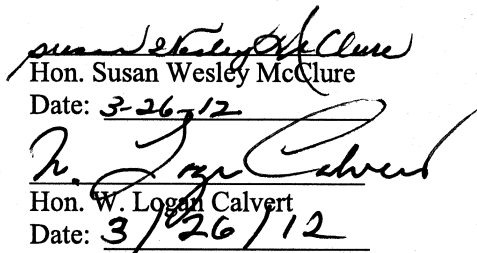 Susan Wesley McClure
Hon. Susan Wesley McClure
Date: 3-26-12
W. Logan Calvert
Hon. W. Logan Calvert
Date: 3/26/12